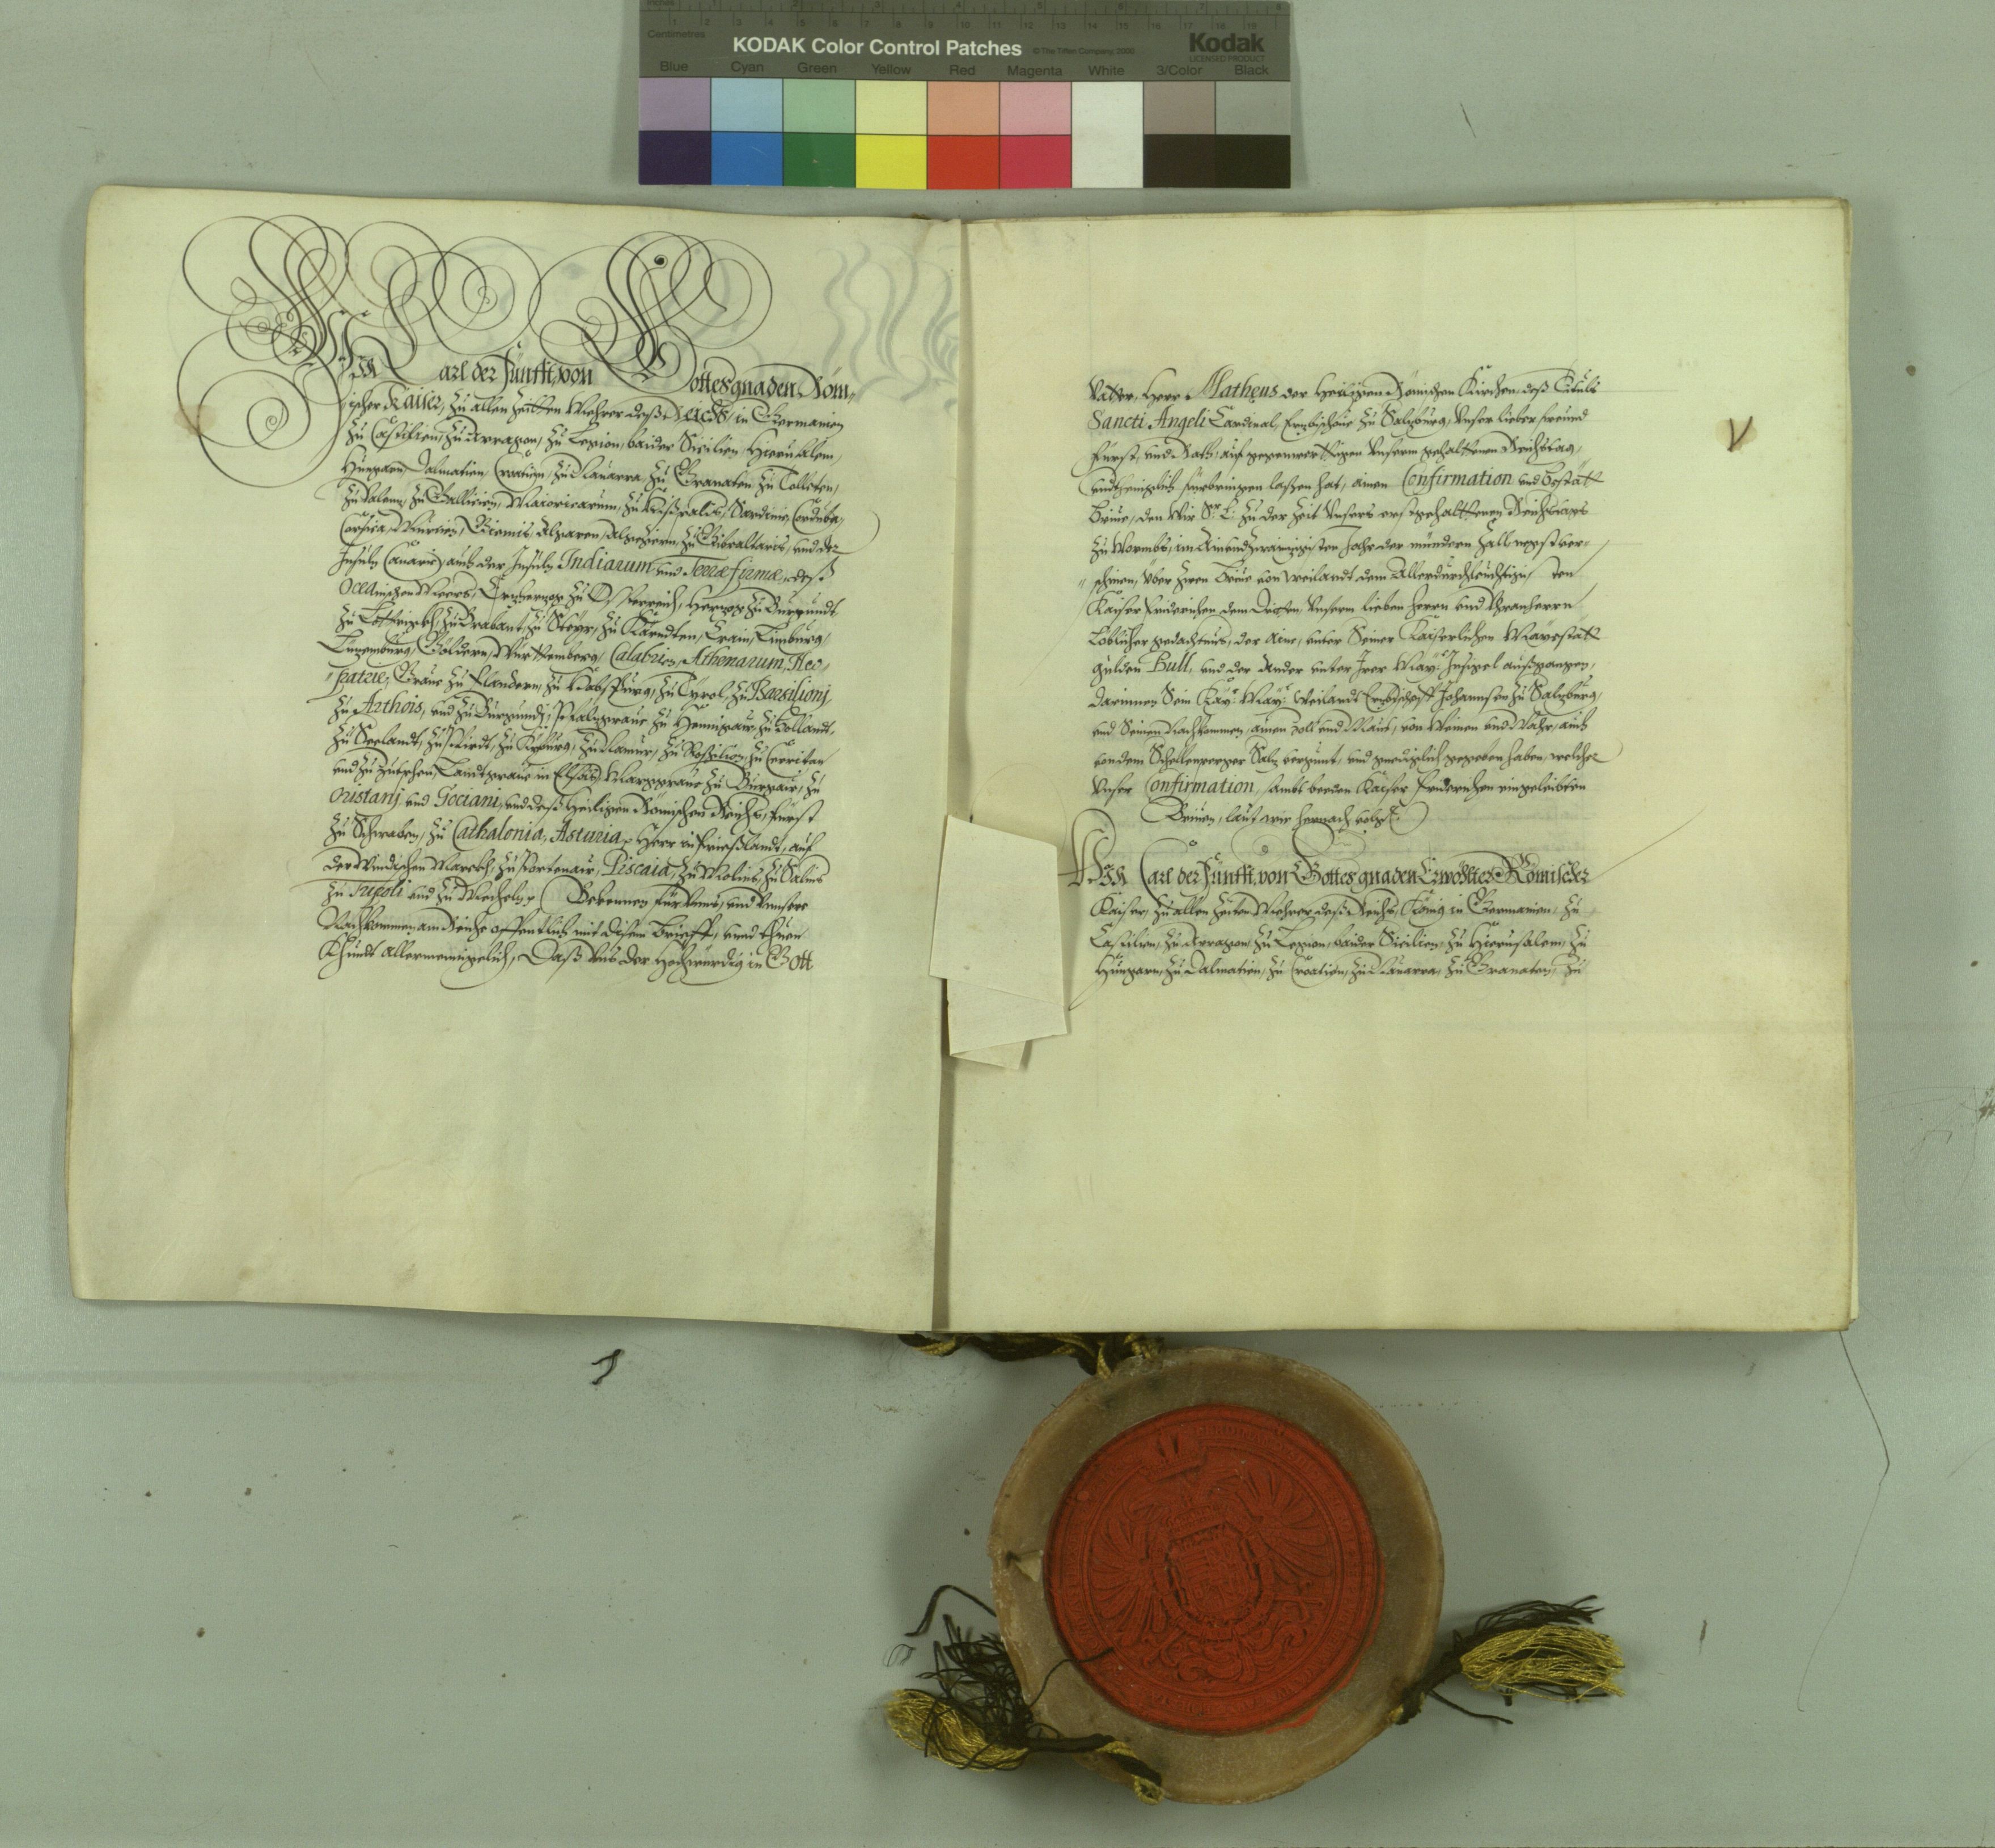 Inches 1 2 3 4 5 6 7 8
Centimetres 1 2 3 4 5 6 7 8 9 10 11 12 13 14 15 16 17 18 19
KODAK Color Control Patches © The Tiffen Company, 2000 Kodak
LICENSED PRODUCT
Blue Cyan Green Yellow Red Magenta White 3/Color Black
Wir Carl der Fünfft, von Gottes gnaden, Röm„
ischer Kaiser, zu allen Zeitten Mehrer deß Reichs, in Germanien
zu Castilien, zu Arragon, zu Legion, baider Sicilien, Hierusalem,
Hungarn, Dalmatien, Croatien, zu Nauarra, zu Granaten, zu Tolleten,
zu Valenz, zu Gallicien, Maioricarum, zu Hißpalis, Sardinie, Corduba,
Corsica, Murcien, Giennis, Algarbien, Algeziern, zu Gibraltaris, und der
Insuln Canarie, auch der Insuln Indiarum und Terræ firmæ, deß
Oceanischen Meers, Ertzhertzog zu Österreich, Hertzog zu Burgundt,
zu Lottrigkh, zu Brabant, zu Steyr, zu Kärndten, Crain, Limburg,
Lutzemburg, Geldern, Württemberg, Calabrien, Athenarum, Neo„
„patriæ, Graue zu Flandern, zu Habspurg, zu Tyrol, zu Barsilioni,
zu Arthois, und zu Burgundj, Pfaltzgraue zu Hennigaw, zu Hollandt,
zu Seelandt, zu Pfierdt, zu Kyburg, zu Namur, zu Rossilion, zu Cerritan
und zu Zutphen, Landtgraue in Elsäß, Marggraue zu Burgaw, zu
Oristanj und Gociani, und deß Heiligen Römischen Reichs, Fürst
zu Schwaben, zu Cathalonia, Asturia, Herr in Frießlandt, auf
der Windischen Marckh, zu Portenaw, Piscaia, zu Molins, zu Salins
zu Tripoli und zu Mecheln. Bekennen für Unns, und unnsere
Nachkommen am Reiche offentlich mit disem Brieff, und thuen
Khundt Allermenigelich, Daß Uns der Hochwürdig in Gott
Vatter, Herr Matheus der Heiligen Römischen Kirchen, deß Tituls
Sancti Angeli Cardinal, Ertzbischoue zu Saltzburg, Unser lieber freund
Fürst, und Rath, auf gegenwerttigen Unserm gehaltenen Reichstag,
fürbringen laßen hat, ainen Confirmation und Bestätt
Brieue, den Wir Sr. L: zu der Zeit Unsers erst gehalttenen Reichstags
zu Wormbs, im Ainundzwaintzigisten Jahr der mündern Zall negst ver„
„schinen, über zwen Brieue von weilandt dem Allerdurchleuchtigisten
Kaiser Friderichen dem Dritten, Unserm lieben Herrn und Uranherrn
Löblicher gedächtnus, der Aine, unter Seiner Kaiserlichen Mayestätt
gulden Bull, und der Ander unter Irer May: Insigel außgangen,
darinnen Sein Kay: May: Weilandt Ertzbischoff Johannsen zu Saltzburg,
und Seinen Nachkommen, ainen Zoll und Maut, von Weinen und Wahr, auch
von dem Schellenperger Saltz vergunt, und gnediglich gegeben haben, welche
Unser Confirmation, sambt beeden Kaiser Friderichen eingeleibten
Brieuen, laut wie hernach volgt.
Wir Carl der Fünfft, von Gottes gnaden Erwöhlter Römischer
Kaiser, zu allen Zeiten Mehrer deß Reichs, König in Germanien, zu
Castilien, zu Arragon, zu Legion, baider Sicilien, zu Hierusalem, zu
Hungarn, zu Dalmatien, zu Croatien, zu Nauarra, zu Granaten, zu